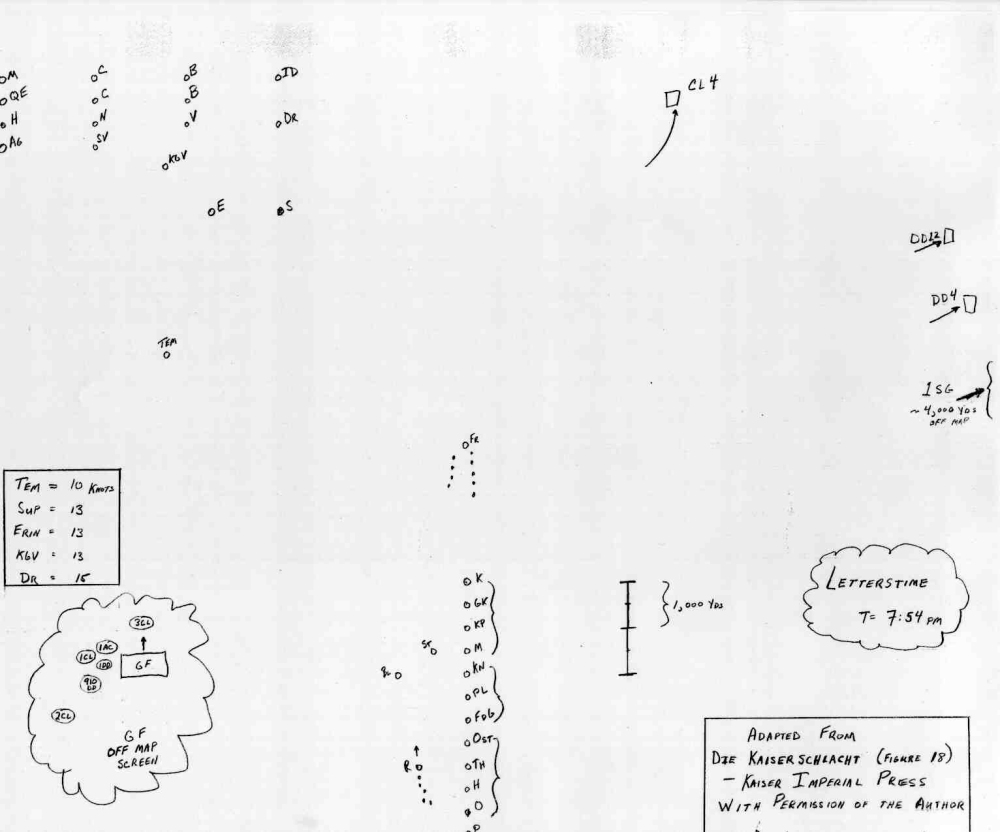 M
C
B
ID
CL4
QE
C
B
H
N
V
DR
AG
SV
KGV
E
S
DD12
DD4
TEM
1SG
~4,000 YDS
OFF MAP
FR
TEM = 10 KNOTS
SUP = 13
ERIN = 13
KGV = 13
DR = 15
K
GK
KP
M
ST
KN
PL
FDG
OST
TH
H
O
P
R
1,000 YDS
LETTERSTIME
T= 7:54 PM
3CL
1AC
1CL
1DD
GF
910
DD
2CL
GF
OFF MAP
SCREEN
ADAPTED FROM
DIE KAISERSCHLACHT (FIGURE 18)
- KAISER IMPERIAL PRESS
WITH PERMISSION OF THE AUTHOR